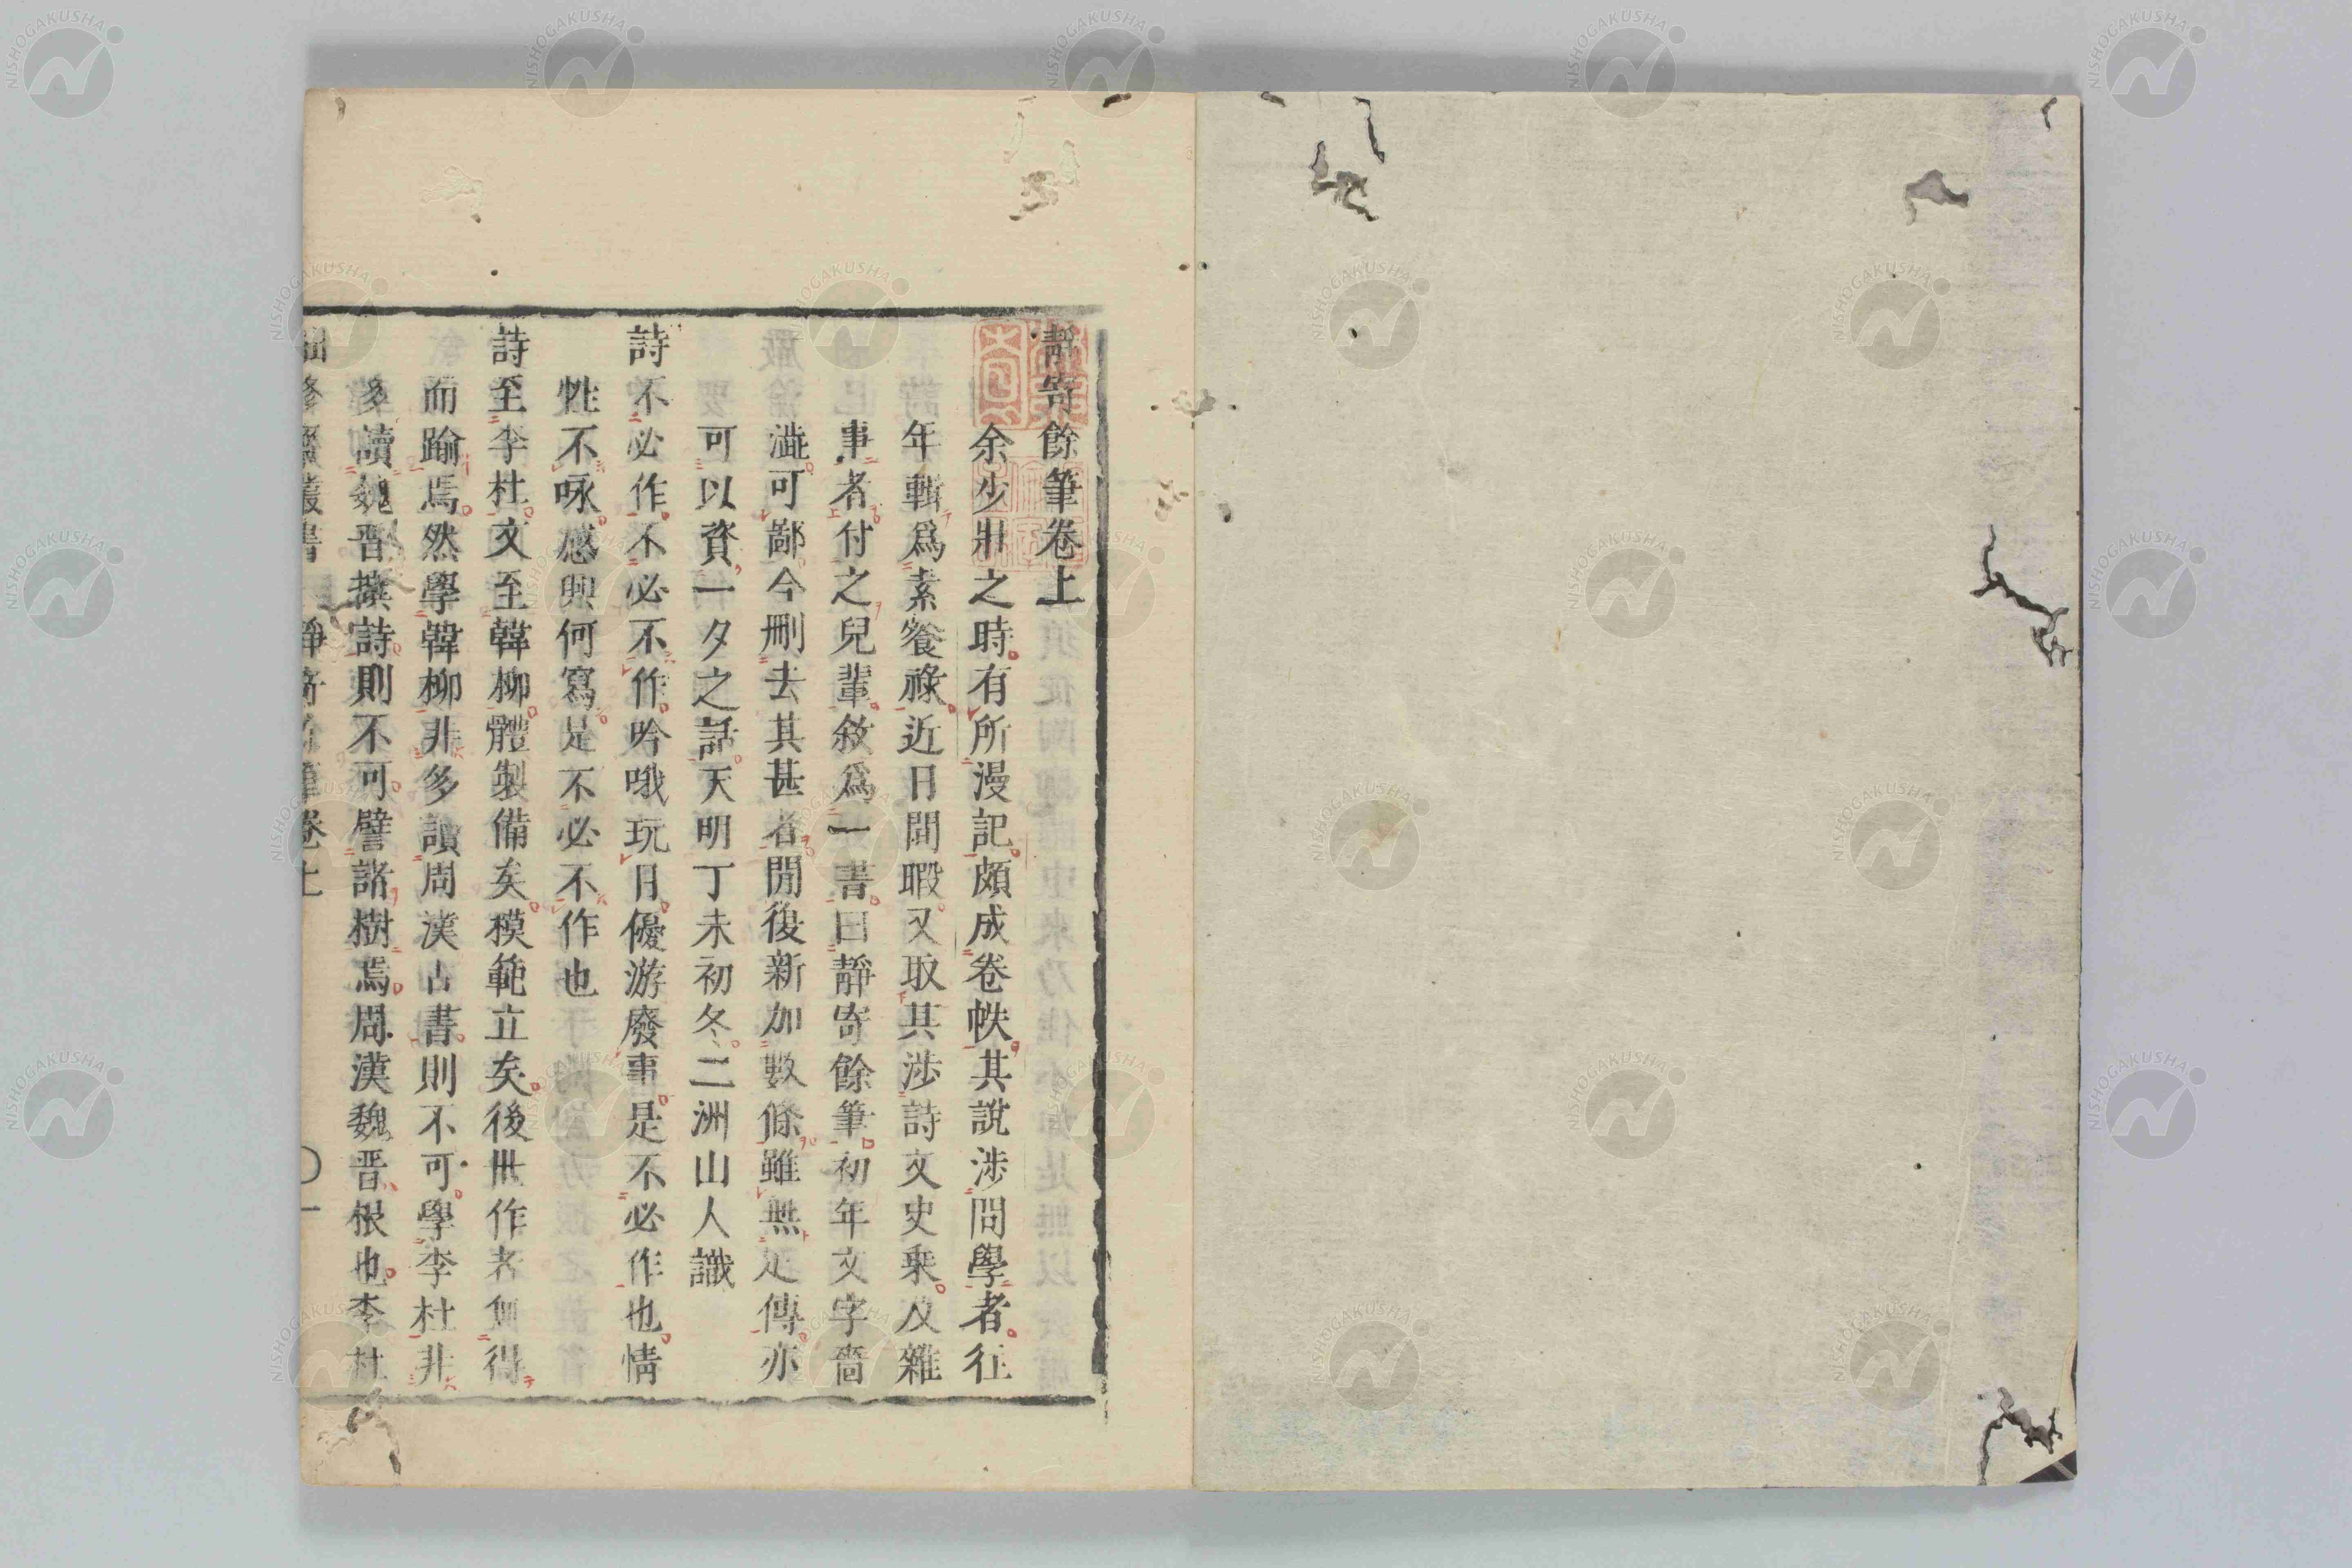 靜寄餘筆卷上
余少壯之時有所漫記頗成卷帙其說涉問學者往
年輯爲素餐祿近日閒暇又取其涉詩文史乘及雜
事者付之兒輩敘爲一書曰靜寄餘筆初年文字嗇
澁可鄙今刪去其甚者閒後新加數條雖無足傳亦
可以資一夕之話天明丁未初冬二洲山人識
詩不必作不必不作吟哦玩月優游廢事是不必作也情
性不咏感興何寫是不必不作也
詩至李杜文至韓柳體製備矣模範立矣後世作者無得
而踰焉然學韓柳非多讀周漢古書則不可學李杜非
多讀魏晋撰詩則不可譬諸樹焉周漢魏晋根也李杜
叢書 靜寄餘筆卷上 〇一
NISHOGAKUSHA